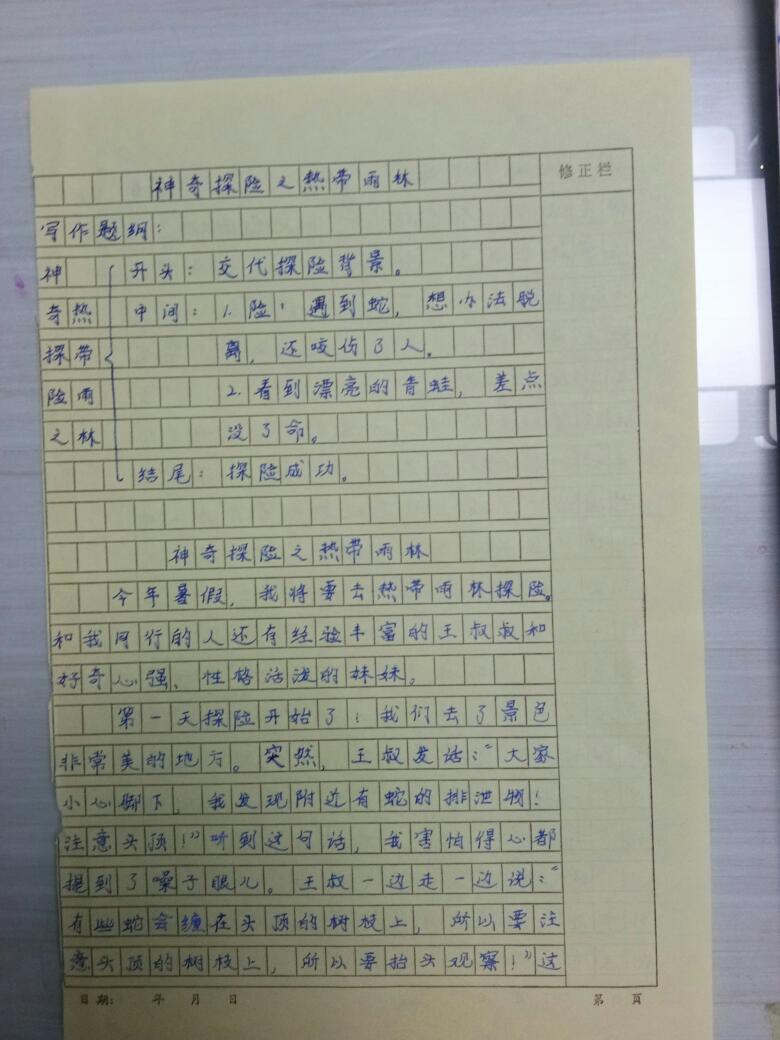 神奇探险之热带雨林
修正栏
写作题纲：
神 开头：交代探险背景。
奇热 中间：1.险：遇到蛇，想办法脱
探带 离，还咬伤了人。
险雨 2.看到漂亮的青蛙，差点
之林 没了命。
结尾：探险成功。
神奇探险之热带雨林
今年暑假，我将要去热带雨林探险。
和我同行的人还有经验丰富的王叔叔和
好奇心强、性格活泼的妹妹。
第一天探险开始了！我们去了景色
非常美的地方。突然，王叔发话：“大家
小心脚下，我发现附近有蛇的排泄物！
注意头顶！”听到这句话，我害怕得心都
提到了嗓子眼儿。王叔一边走一边说：“
有些蛇会缠在头顶的树枝上，所以要注
意头顶的树枝上，所以要抬头观察！”这
日期： 年 月 日 第 页